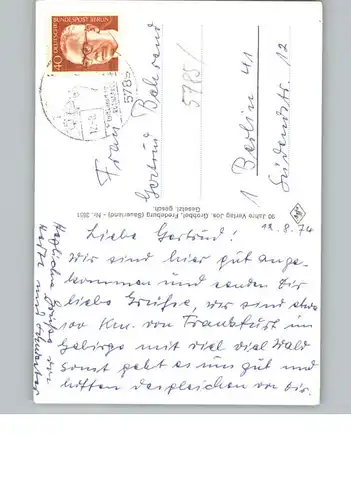 DEUTSCHE BUNDESPOST BERLIN
40
5789
5785/
Frau
Gertrud Bahrend
1 Berlin 41
Südendstr. 12
90 Jahre Verlag Jos. Grobbel, Fredeburg (Sauerland) - Nr. 3051
Gesetzl. gesch.
Liebe Gertrud! 12.8.74
Wir sind hier gut ange-
kommen und senden Dir
liebe Grüße, wir sind etwa
100 Km. von Frankfurt im
Gebirge mit viel viel Wald
sonst geht es uns gut und
hoffen desgleichen von Dir.
Herzliche Grüße von
und